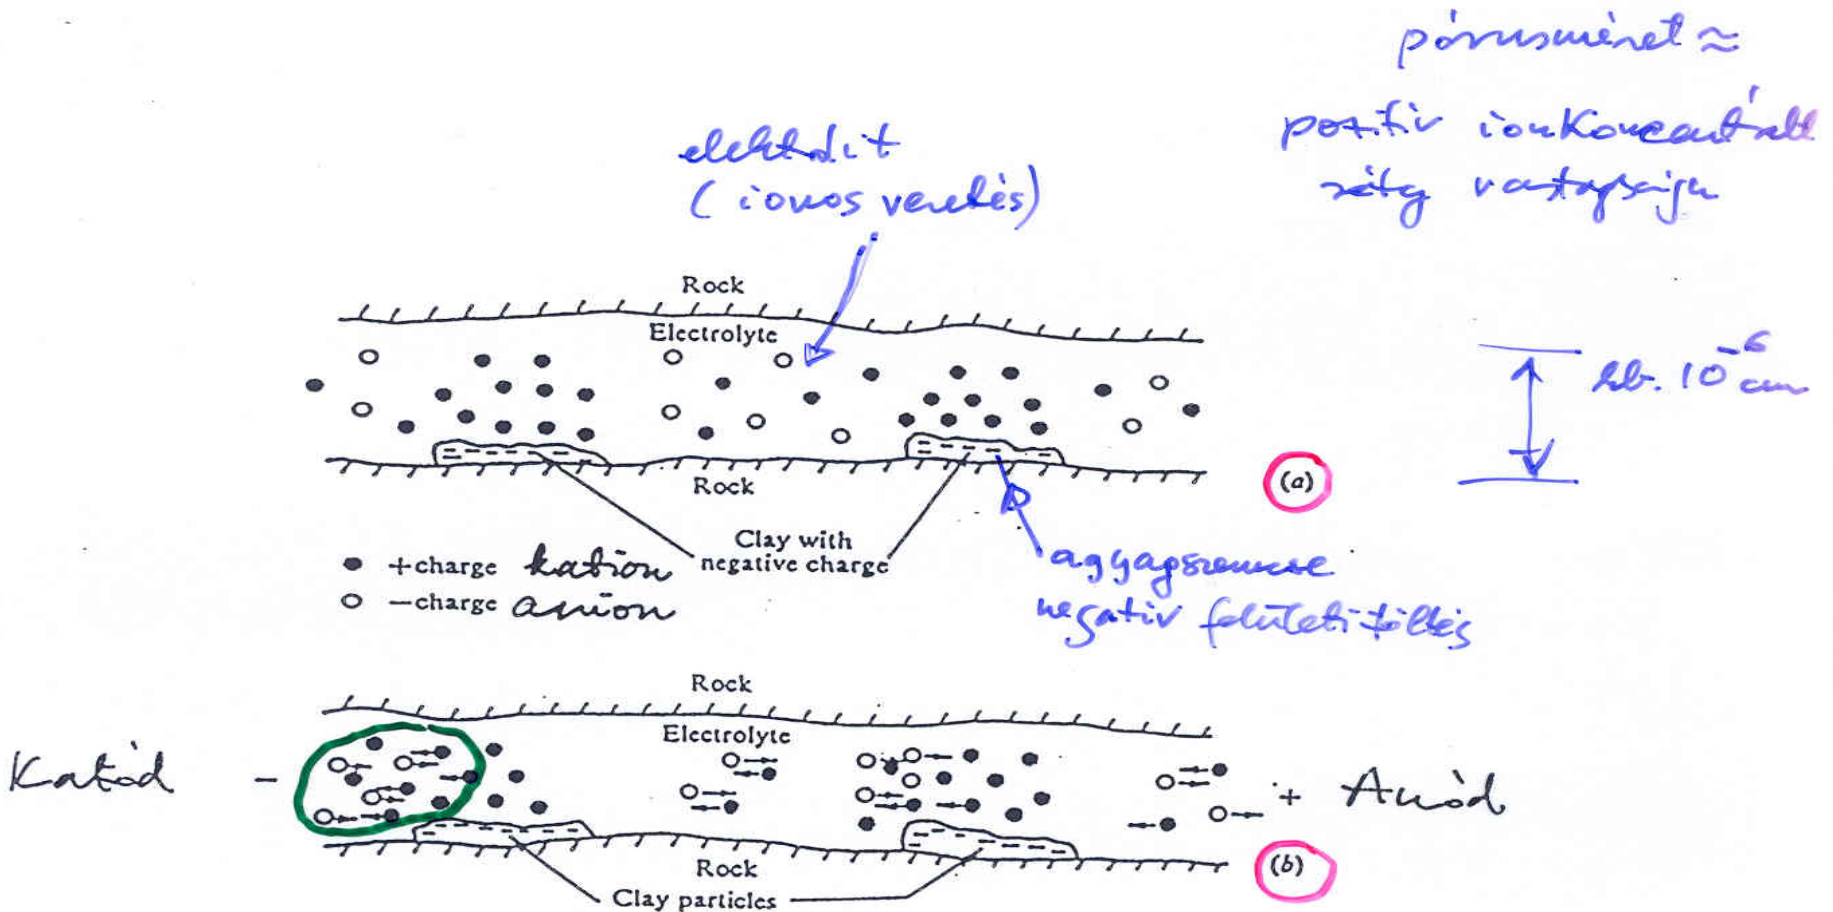 pórusméret ≈
pozitív ionkoncentrált
réteg vastagsága
elektrolit
(ionos vezetés)
Rock
Electrolyte
kb. 10⁻⁶ cm
Rock
(a)
Clay with
negative charge
+charge kation
−charge anion
agyagszemcse
negatív felületi töltés
Rock
Electrolyte
Katód −
+ Anód
Rock
(b)
Clay particles